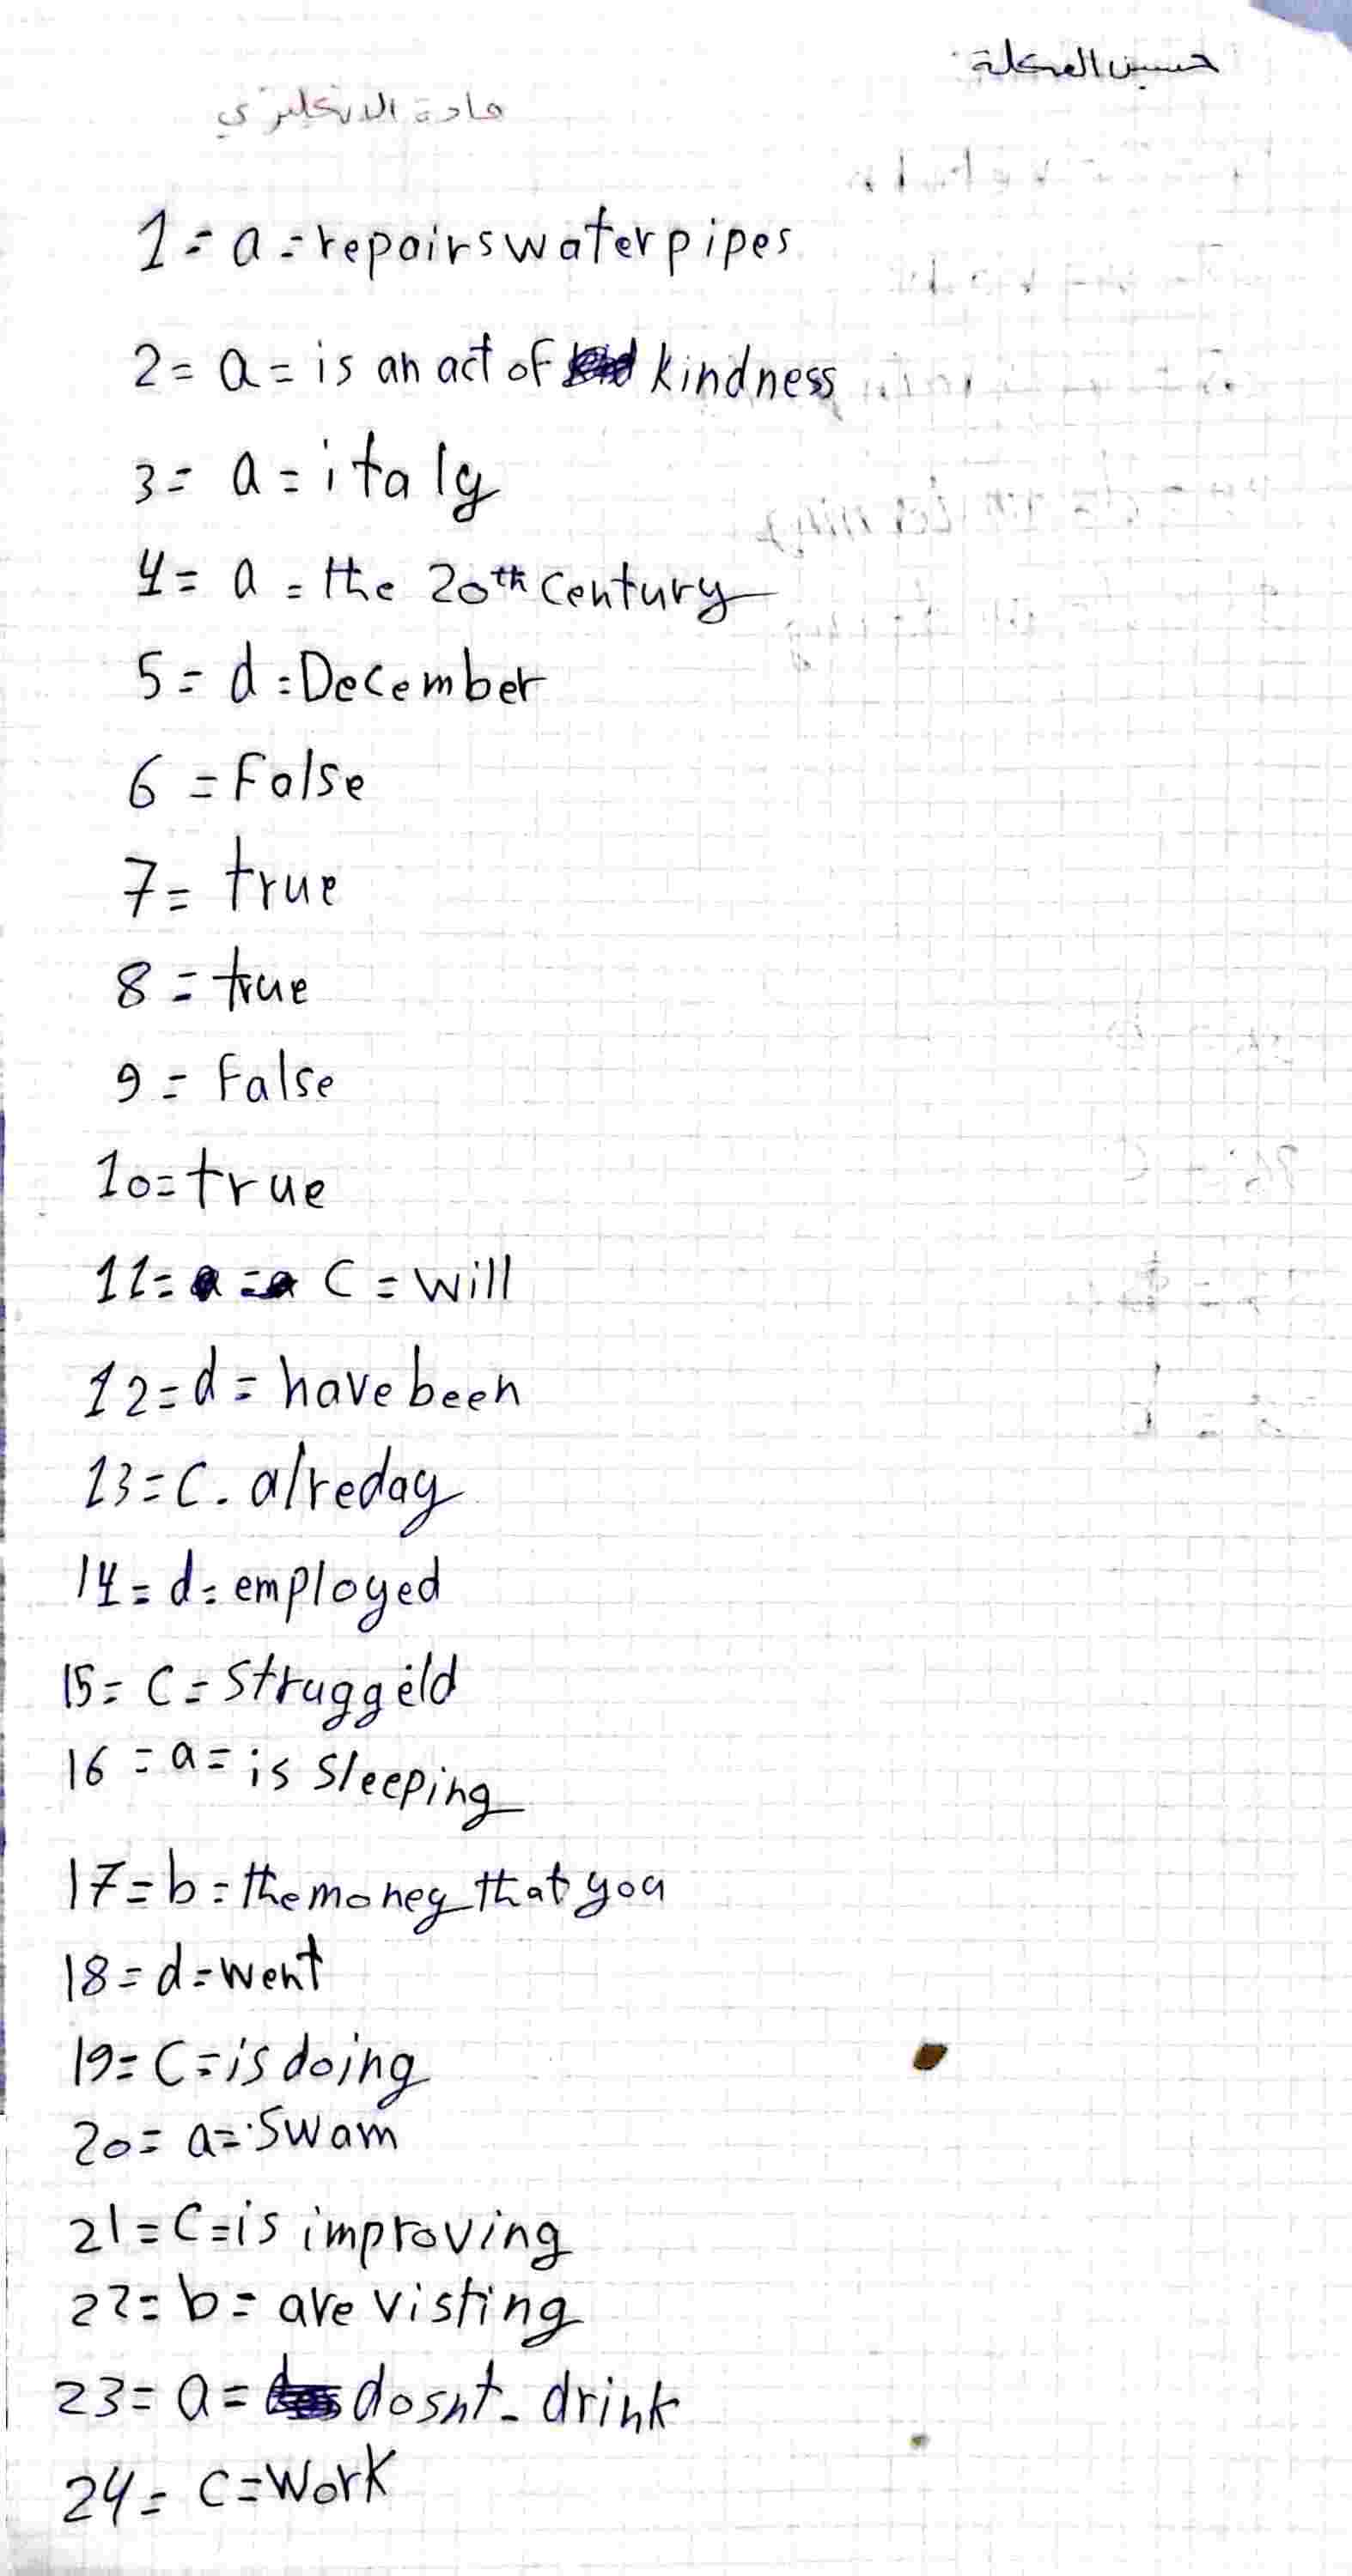 حسين العكلة
مادة الانكليزي
1 = a = repairs water pipes
2 = a = is an act of kindness
3 = a = italy
4 = a = the 20th century
5 = d = December
6 = False
7 = true
8 = true
9 = False
10 = true
11 = C = will
12 = d = have been
13 = C . alreday
14 = d = employed
15 = C = Struggeld
16 = a = is sleeping
17 = b = the money that you
18 = d = went
19 = C = is doing
20 = a = swam
21 = C = is improving
22 = b = are visting
23 = a = dosnt - drink
24 = C = Work